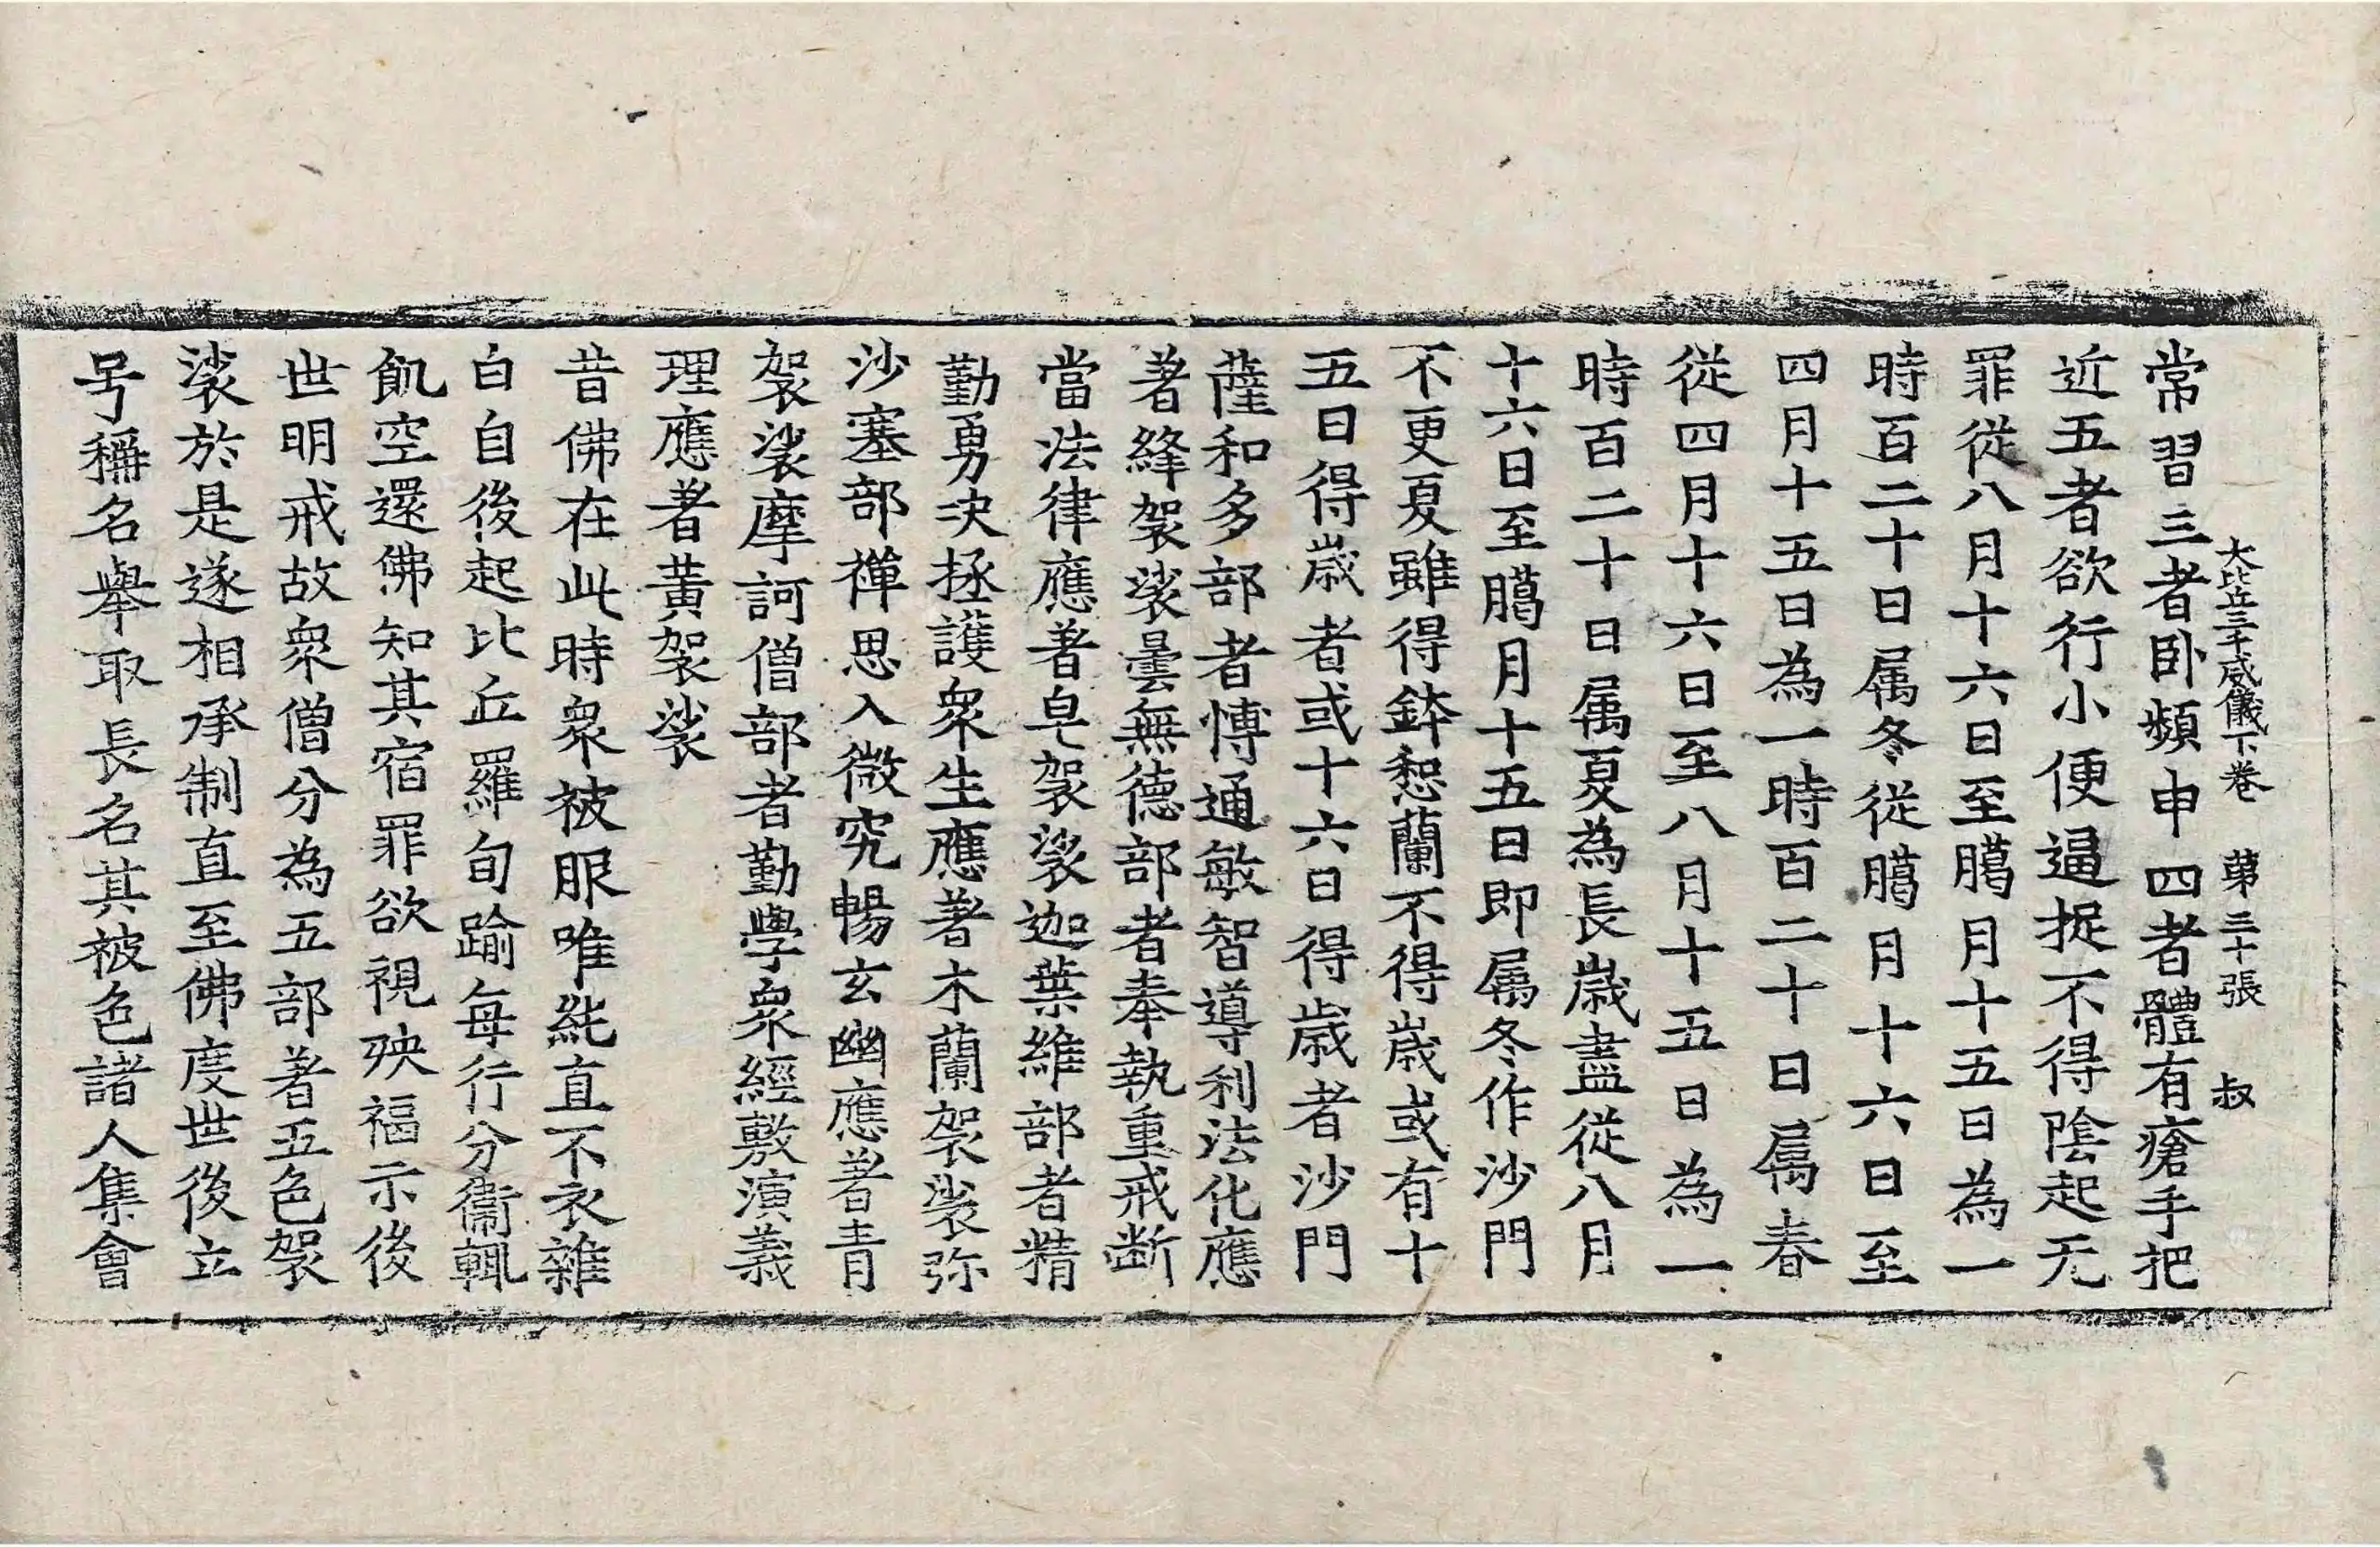 大比丘三千威儀下卷 第三十張 叔
常習三者卧頻申四者體有瘡手把
近五者欲行小便逼捉不得陰起无
罪從八月十六日至臈月十五日為一
時百二十日属冬從臈月十六日至
四月十五日為一時百二十日属春
從四月十六日至八月十五日為一
時百二十日属夏為長歲盡從八月
十六日至臈月十五日即属冬作沙門
不更夏雖得鉢惒蘭不得歲或有十
五日得歲者或十六日得歲者沙門
薩和多部者博通敏智導利法化應
著絳袈裟曇無德部者奉執重戒断
當法律應著皂袈裟迦葉維部者精
勤勇決拯護衆生應著木蘭袈裟弥
沙塞部禪思入微究暢玄幽應著青
袈裟摩訶僧部者勤學衆經敷演義
理應著黃袈裟
昔佛在此時衆被服唯純直不衣雜
白自後起比丘羅旬踰每行分衞輒
飢空還佛知其宿罪欲視殃福示後
世明戒故衆僧分為五部著五色袈
裟於是遂相承制直至佛度世後立
号稱名舉取長名其被色諸人集會